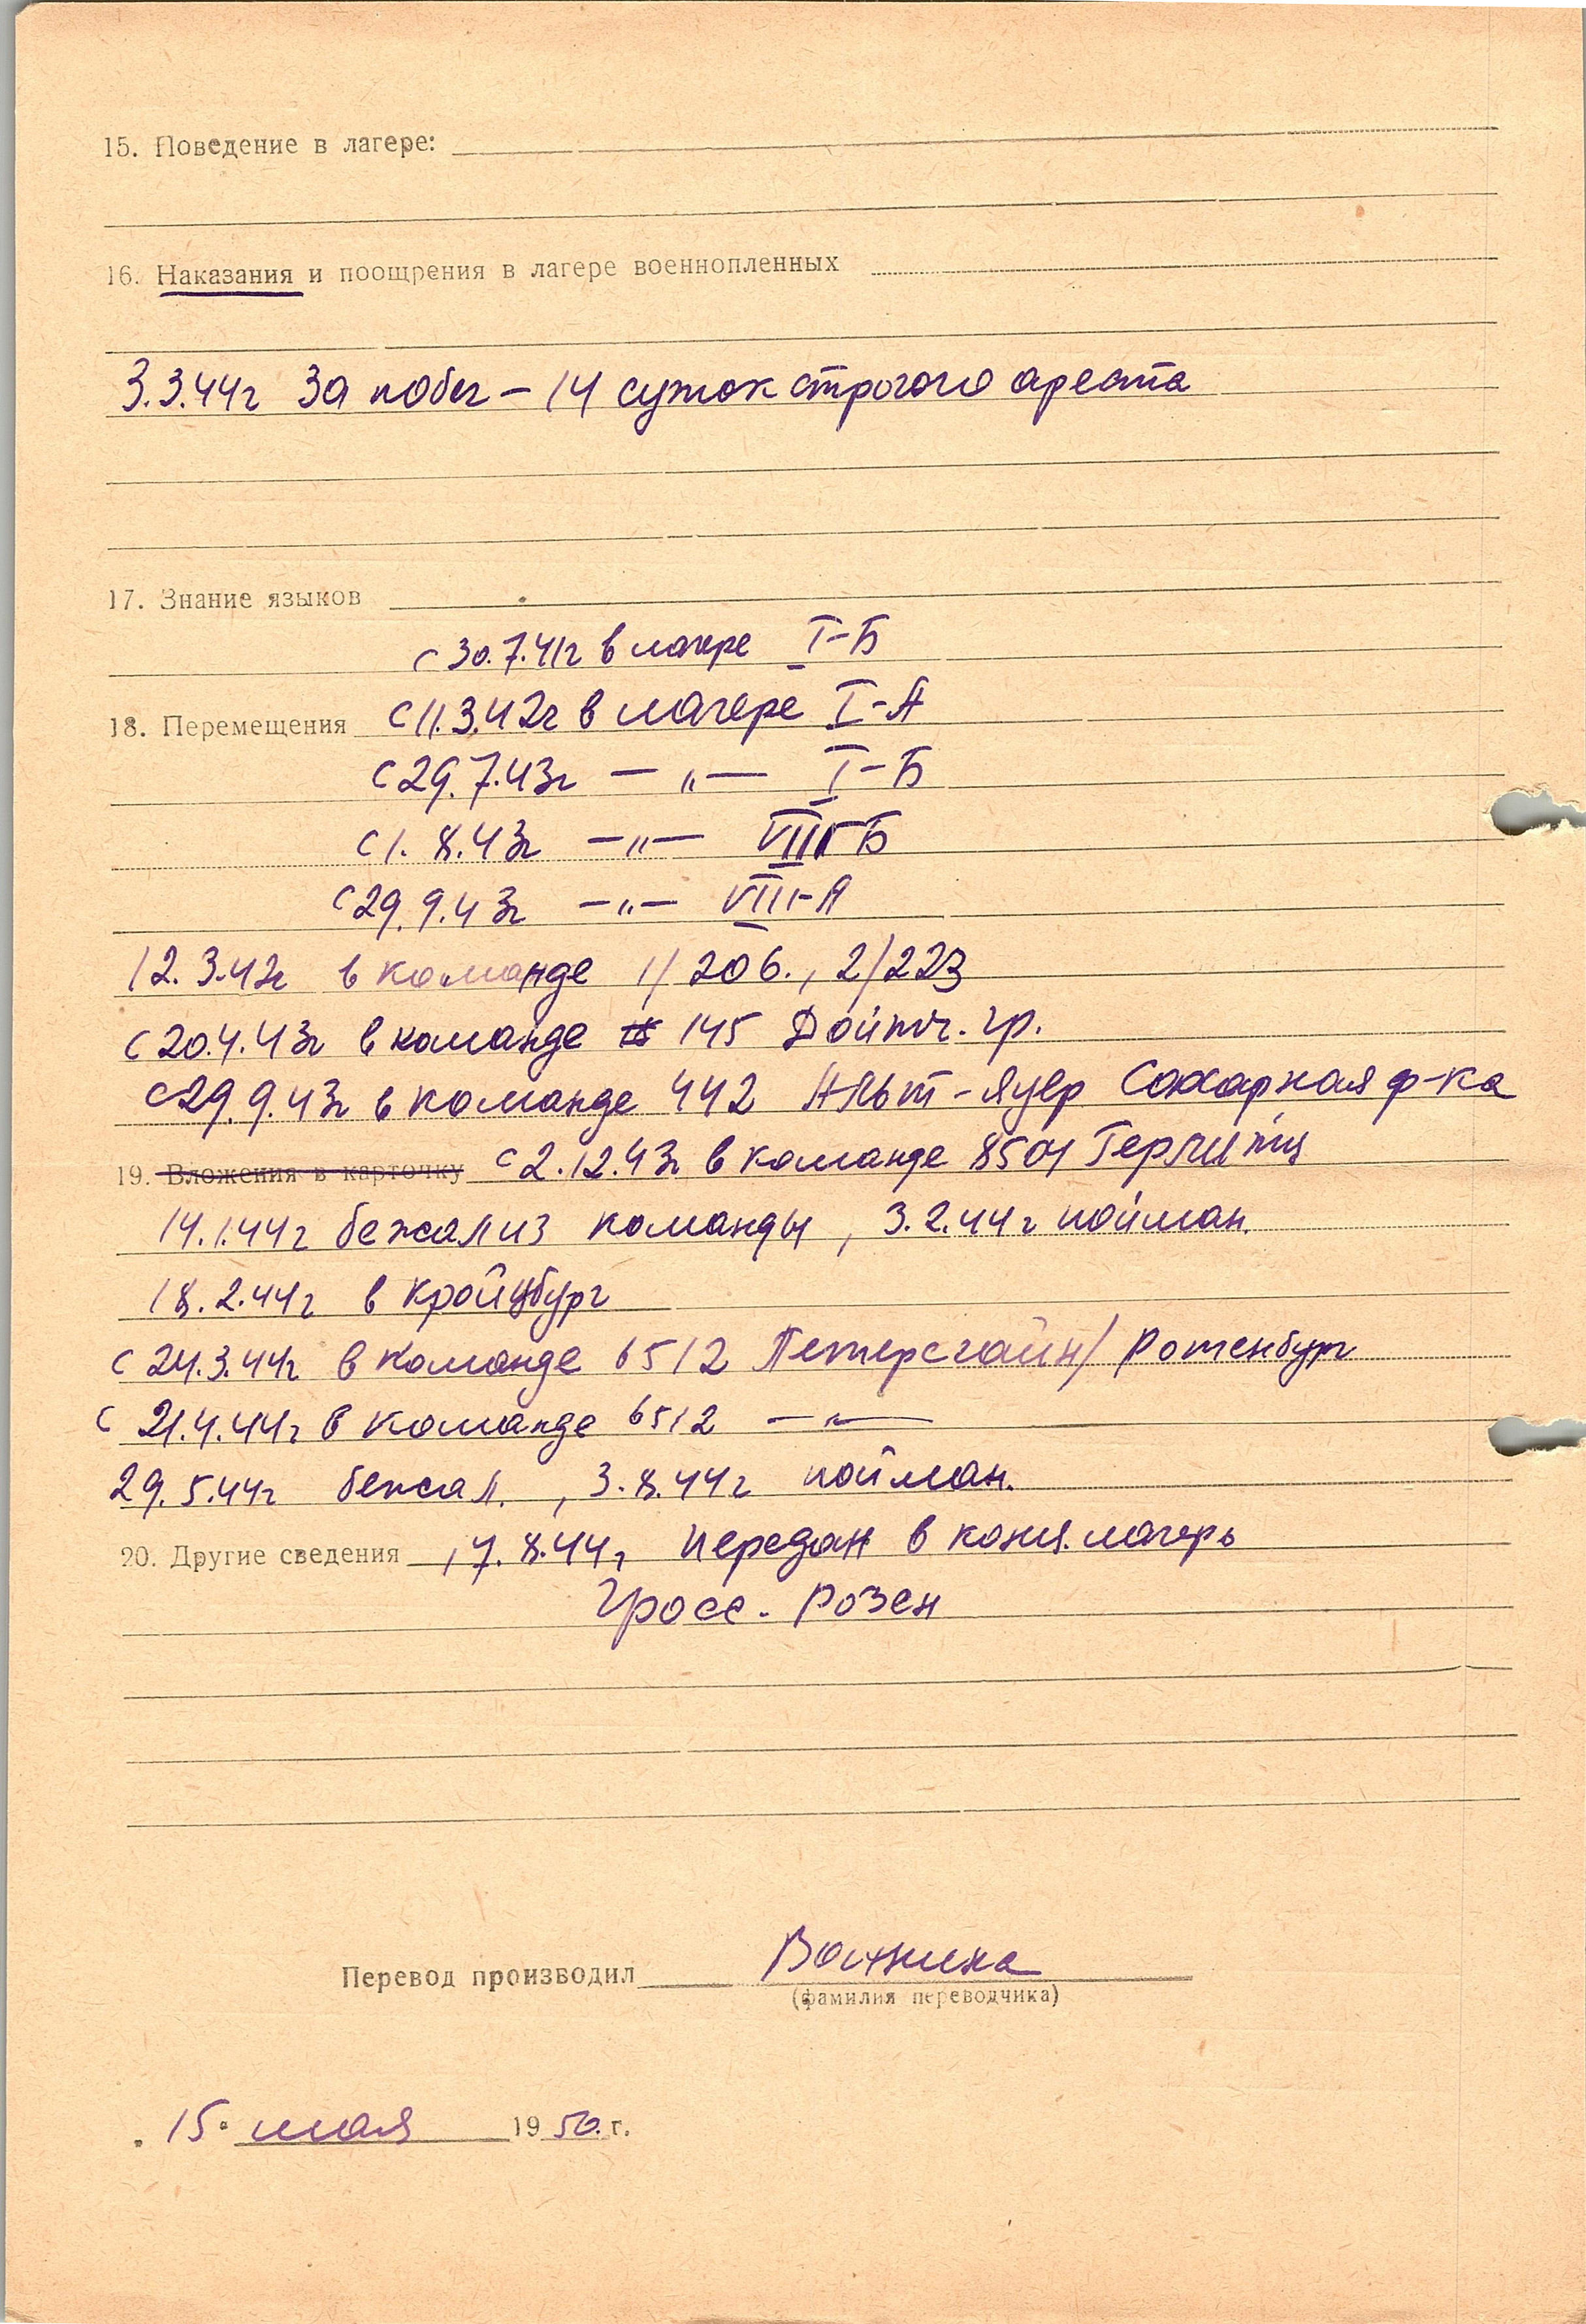 15. Поведение в лагере:
16. Наказания и поощрения в лагере военнопленных
3.3.44г за побег – 14 суток строгого ареста
17. Знание языков
с 30.7.41г в лагере I-Б
18. Перемещения с 11.3.42г в лагере I-А
с 29.7.43г — „ — I-Б
с 1.8.43г — „ — VIII-Б
с 29.9.43г — „ — VIII-А
12.3.42г в команде 1/206., 2/223
с 20.4.43г в команде 145 Дойтч. гр.
с 29.9.43г в команде 442 Альт-Яуер Сахарная ф-ка
19. Вложения в карточку с 2.12.43г в команде 8501 Герлитц
14.1.44г бежал из команды, 3.2.44г пойман.
18.2.44г в Кройцбург
с 24.3.44г в команде 6512 Петерсгайн/Ротенбург
с 21.4.44г в команде 6512 — „ —
29.5.44г бежал., 3.8.44г пойман.
20. Другие сведения 17.8.44г передан в конц. лагерь
Гросс-Розен
Перевод производил
(фамилия переводчика)
15 мая 1950 г.